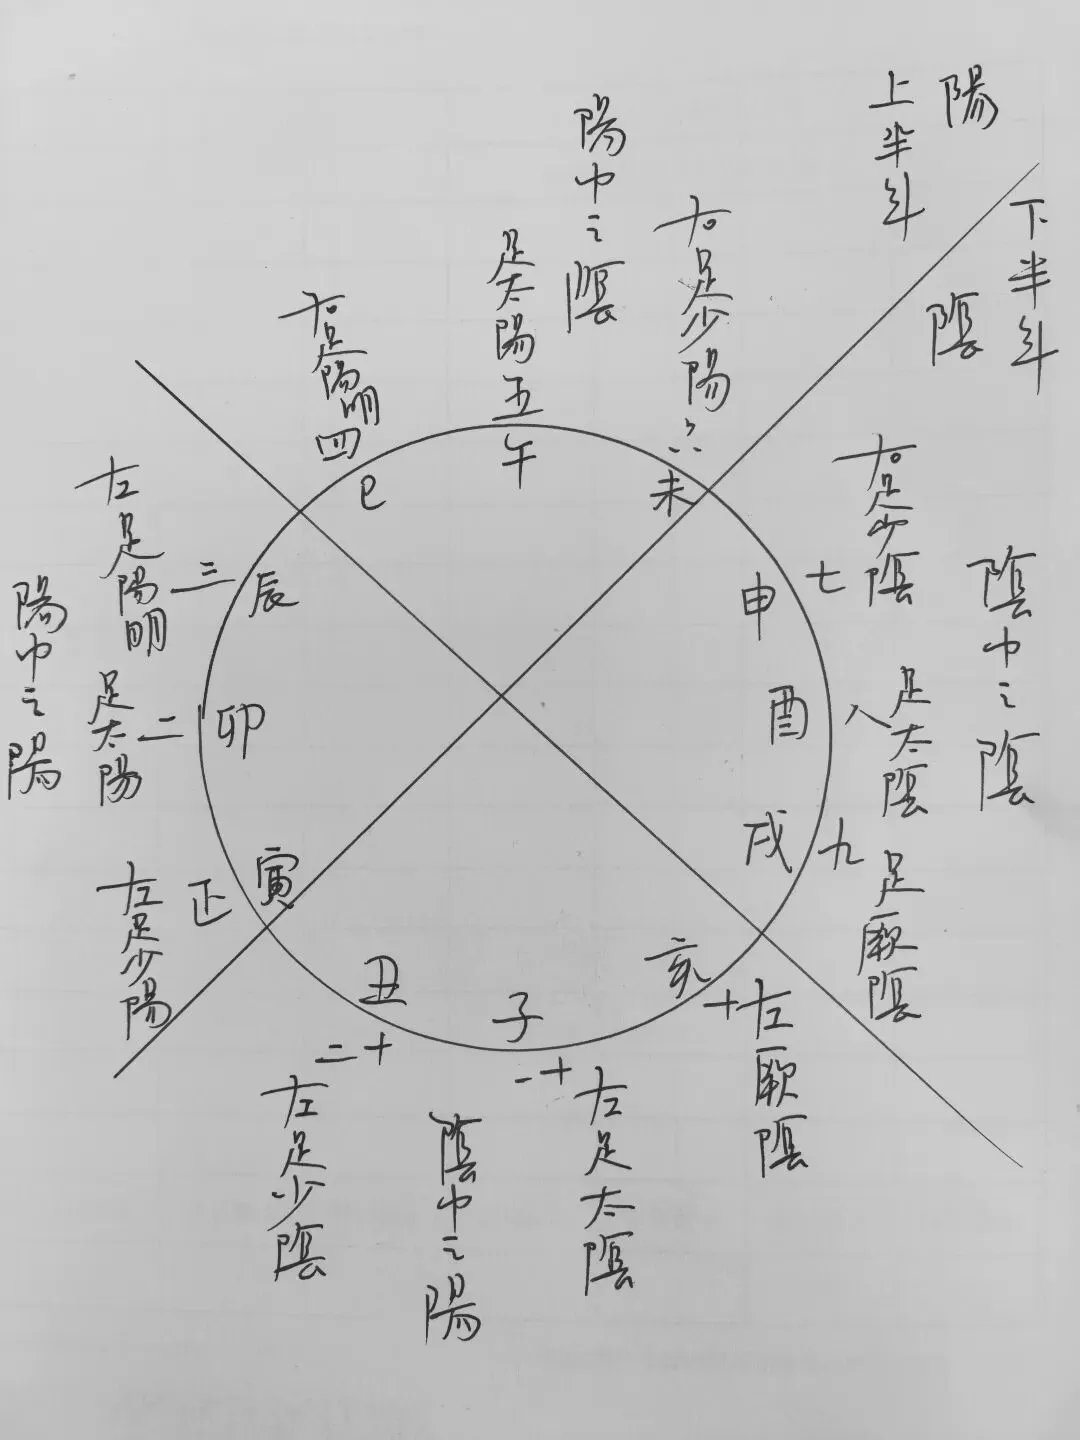 陽
上半年
下半年
陰
陽中之陰
右足少陽
六
未
足太陽
五
午
右足陽明
四
巳
左足陽明
三
辰
陽中之陽
足太陽
二
卯
左足少陽
正
寅
左足少陰
十二
丑
陰中之陽
左足太陰
十一
子
左厥陰
十
亥
足厥陰
九
戌
足太陰
八
酉
陰中之陰
右足少陰
七
申